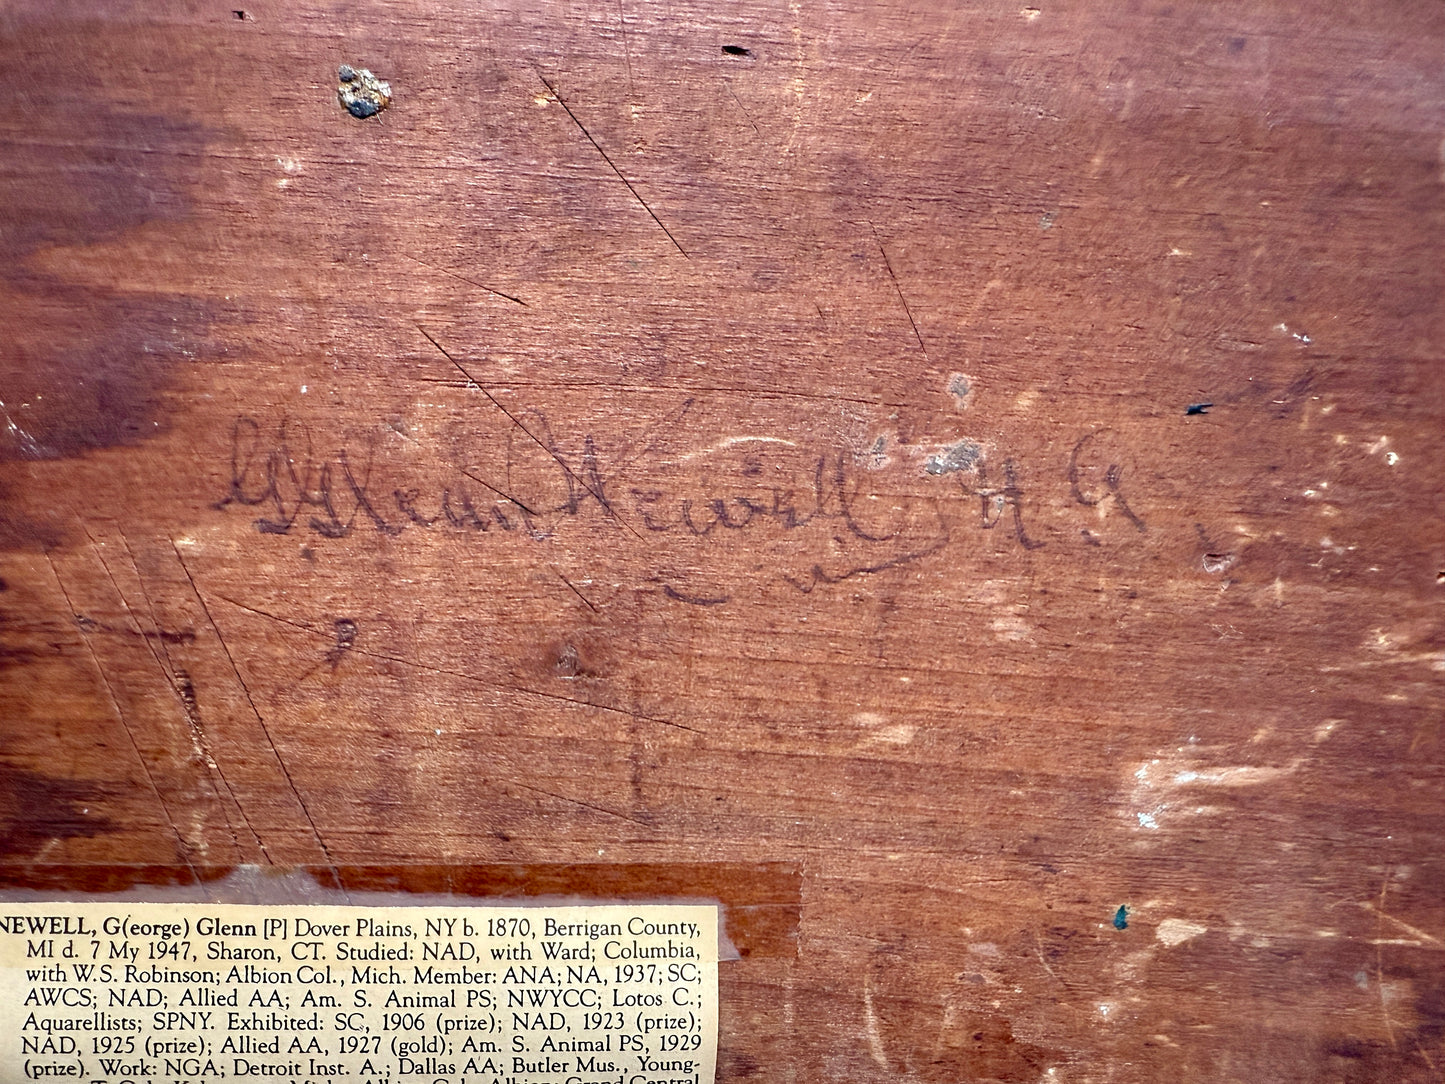 G Glenn Newell N. A.
NEWELL, G(eorge) Glenn [P] Dover Plains, NY b. 1870, Berrigan County,
MI d. 7 My 1947, Sharon, CT. Studied: NAD, with Ward; Columbia,
with W.S. Robinson; Albion Col., Mich. Member: ANA; NA, 1937; SC;
AWCS; NAD; Allied AA; Am. S. Animal PS; NWYCC; Lotos C.;
Aquarellists; SPNY. Exhibited: SC, 1906 (prize); NAD, 1923 (prize);
NAD, 1925 (prize); Allied AA, 1927 (gold); Am. S. Animal PS, 1929
(prize). Work: NGA; Detroit Inst. A.; Dallas AA; Butler Mus., Young-
Mich. Albion Col., Albion; Grand Central